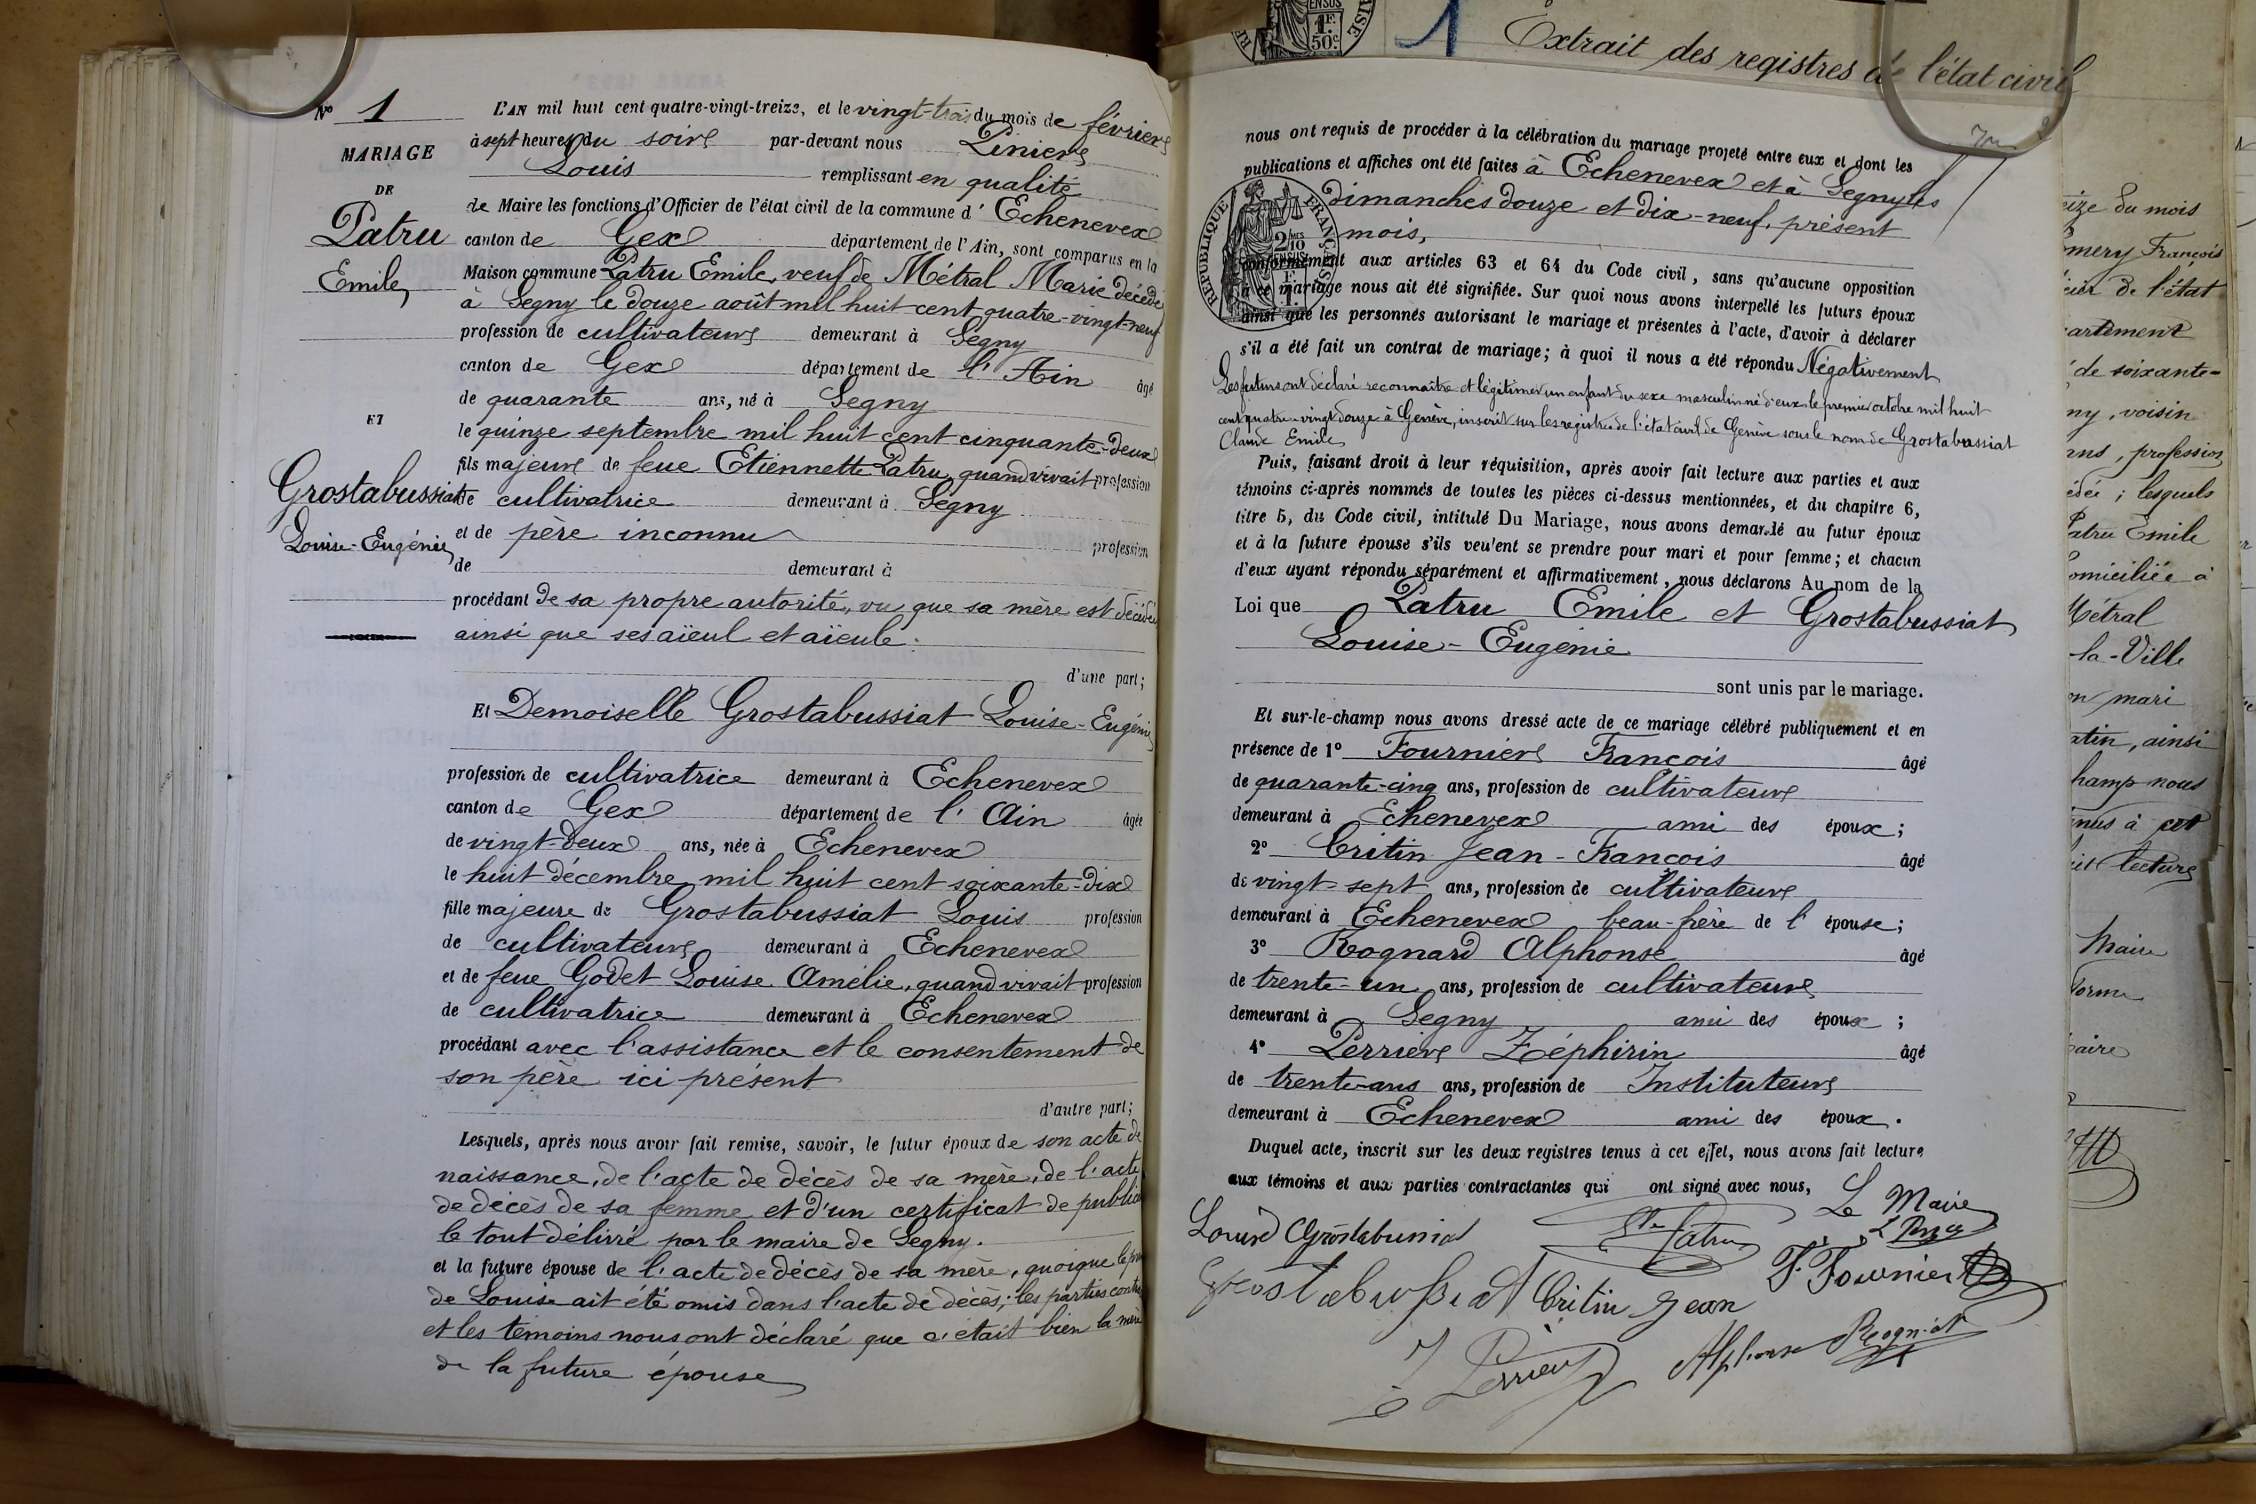 Nº 1
MARIAGE
DE
Patru
Emile
ET
Grostabussiat
Louise-Eugénie
L'AN mil huit cent quatre-vingt-treize, et le vingt-trois du mois de février
à sept heures du soir par-devant nous Pinier
Louis remplissant en qualité
de Maire les fonctions d'Officier de l'état civil de la commune d' Echenevex
canton de Gex département de l'Ain, sont comparus en la
Maison commune Patru Emile, veuf de Métral Marie décédé
à Segny le douze août mil huit cent quatre-vingt-neuf
profession de cultivateur demeurant à Segny
canton de Gex département de l'Ain âgé
de quarante ans, né à Segny
le quinze septembre mil huit cent cinquante-deux
fils majeur de feue Etiennette Patru, quand vivait profession
de cultivatrice demeurant à Segny
et de père inconnu profession
de demeurant à
procédant de sa propre autorité, vu que sa mère est décédée
ainsi que ses aïeul et aïeule.
d'une part;
Et Demoiselle Grostabussiat Louise-Eugénie
profession de cultivatrice demeurant à Echenevex
canton de Gex département de l'Ain âgée
de vingt-deux ans, née à Echenevex
le huit décembre mil huit cent soixante-dix
fille majeure de Grostabussiat Louis profession
de cultivateur demeurant à Echenevex
et de feue Godet Louise Amélie, quand vivait profession
de cultivatrice demeurant à Echenevex
procédant avec l'assistance et le consentement de
son père ici présent
d'autre part;
Lesquels, après nous avoir fait remise, savoir, le futur époux de son acte de
naissance, de l'acte de décès de sa mère, de l'acte
de décès de sa femme et d'un certificat de public
le tout délivré par le maire de Segny.
et la future épouse de l'acte de décès de sa mère, quoique le
de Louise ait été omis dans l'acte de décès; les parties contr
et les témoins nous ont déclaré que c'était bien la mère
de la future épouse
1 Extrait des registres de l'état civil
nous ont requis de procéder à la célébration du mariage projeté entre eux et dont les
publications et affiches ont été faites à Echenevex et à Segny les
dimanches douze et dix-neuf, présent
mois,
conformément aux articles 63 et 64 du Code civil, sans qu'aucune opposition
à ce mariage nous ait été signifiée. Sur quoi nous avons interpellé les futurs époux
ainsi que les personnes autorisant le mariage et présentes à l'acte, d'avoir à déclarer
s'il a été fait un contrat de mariage; à quoi il nous a été répondu Négativement
Les futurs ont déclaré reconnaître et légitimer un enfant du sexe masculin né d'eux le premier octobre mil huit
cent quatre-vingt douze à Genève, inscrit sur les registres de l'état civil de Genève sous le nom de Grostabussiat
Claude Emile
Puis, faisant droit à leur réquisition, après avoir fait lecture aux parties et aux
témoins ci-après nommés de toutes les pièces ci-dessus mentionnées, et du chapitre 6,
titre 5, du Code civil, intitulé Du Mariage, nous avons demandé au futur époux
et à la future épouse s'ils veulent se prendre pour mari et pour femme; et chacun
d'eux ayant répondu séparément et affirmativement, nous déclarons Au nom de la
Loi que Patru Emile et Grostabussiat
Louise-Eugénie
sont unis par le mariage.
Et sur-le-champ nous avons dressé acte de ce mariage célébré publiquement et en
présence de 1º Fournier François âgé
de quarante-cinq ans, profession de cultivateur
demeurant à Echenevex ami des époux;
2º Critin Jean-François âgé
de vingt-sept ans, profession de cultivateur
demeurant à Echenevex beau-frère de l'épouse;
3º Rognard Alphonse âgé
de trente-un ans, profession de cultivateur
demeurant à Segny ami des époux;
4º Perrier Zéphirin âgé
de trente-ans ans, profession de Instituteur
demeurant à Echenevex ami des époux.
Duquel acte, inscrit sur les deux registres tenus à cet effet, nous avons fait lecture
aux témoins et aux parties contractantes qui ont signé avec nous,
Le Maire
Louise Grostabussiat
Patru
F. Fournier
Grostabussiat
Critin Jean
Perrier
Alphonse Rogniat
RÉPUBLIQUE FRANÇAISE
eize du mois
mery François
cier de l'état
artement
de soixante-
ny, voisin
ans, profession
édée; lesquels
Patru Emile
omiciliée à
Métral
la-Ville
on mari
atin, ainsi
hamp nous
enus à cet
ait lecture
Maire
forme
aire